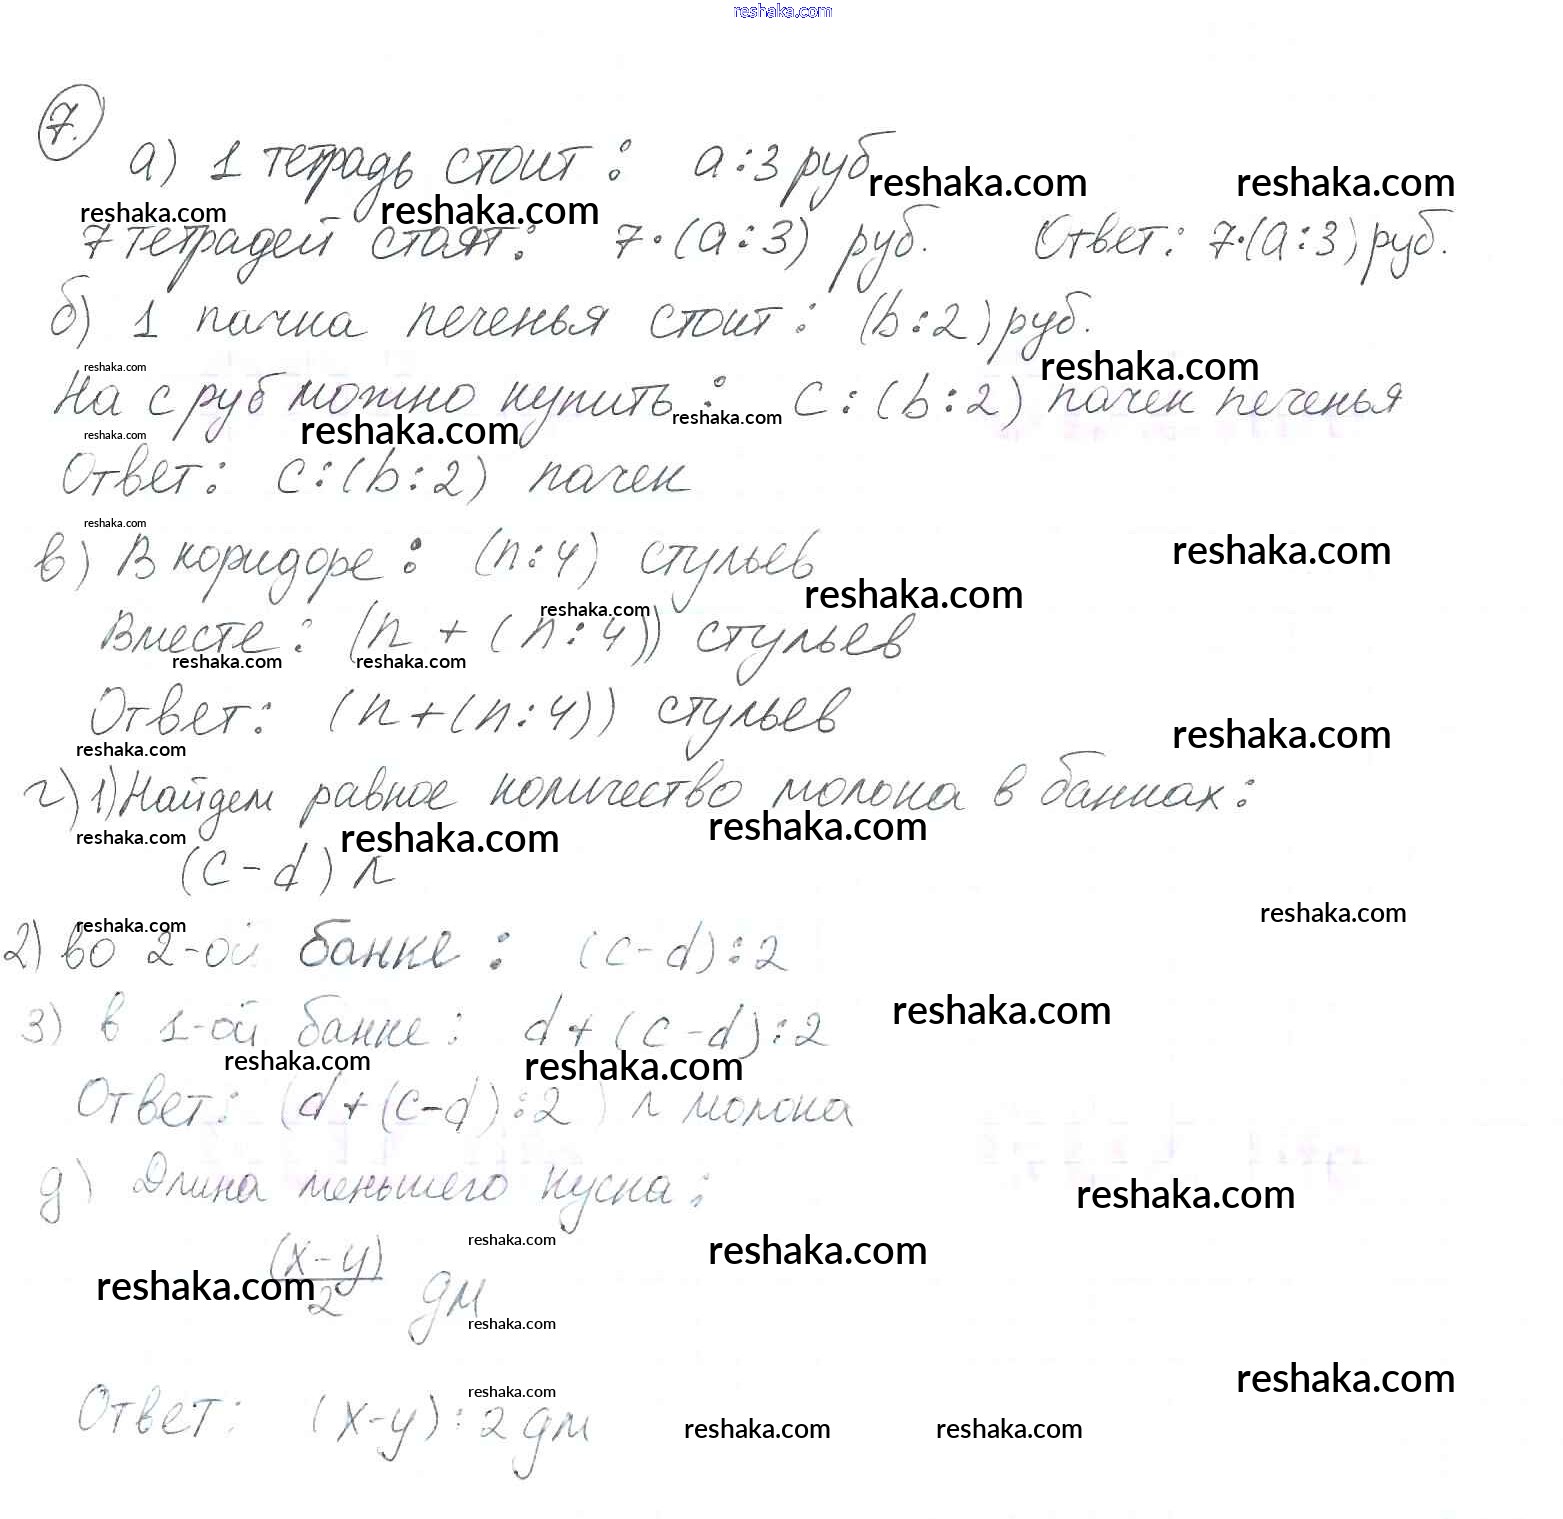 reshaka.com
7.
а) 1 тетрадь стоит: a:3 руб
reshaka.com reshaka.com
reshaka.com reshaka.com
7 тетрадей стоят: 7·(a:3) руб. Ответ: 7·(a:3) руб.
б) 1 пачка печенья стоит: (b:2) руб.
reshaka.com reshaka.com
На c руб можно купить: c:(b:2) пачек печенья
reshaka.com reshaka.com reshaka.com
Ответ: c:(b:2) пачек
reshaka.com
в) В коридоре: (n:4) стульев
reshaka.com
reshaka.com reshaka.com
Вместе: (n + (n:4)) стульев
reshaka.com reshaka.com
Ответ: (n+(n:4)) стульев
reshaka.com reshaka.com
г) 1) Найдем равное количество молока в банках:
reshaka.com reshaka.com reshaka.com
(c-d) л
reshaka.com reshaka.com
2) во 2-ой банке: (c-d):2
reshaka.com
3) в 1-ой банке: d+(c-d):2
reshaka.com reshaka.com
Ответ: (d+(c-d):2) л молока
д) Длина меньшего куска:
reshaka.com
reshaka.com reshaka.com
(x-y)
reshaka.com
2 дм
reshaka.com
reshaka.com reshaka.com
Ответ: (x-y):2 дм
reshaka.com reshaka.com